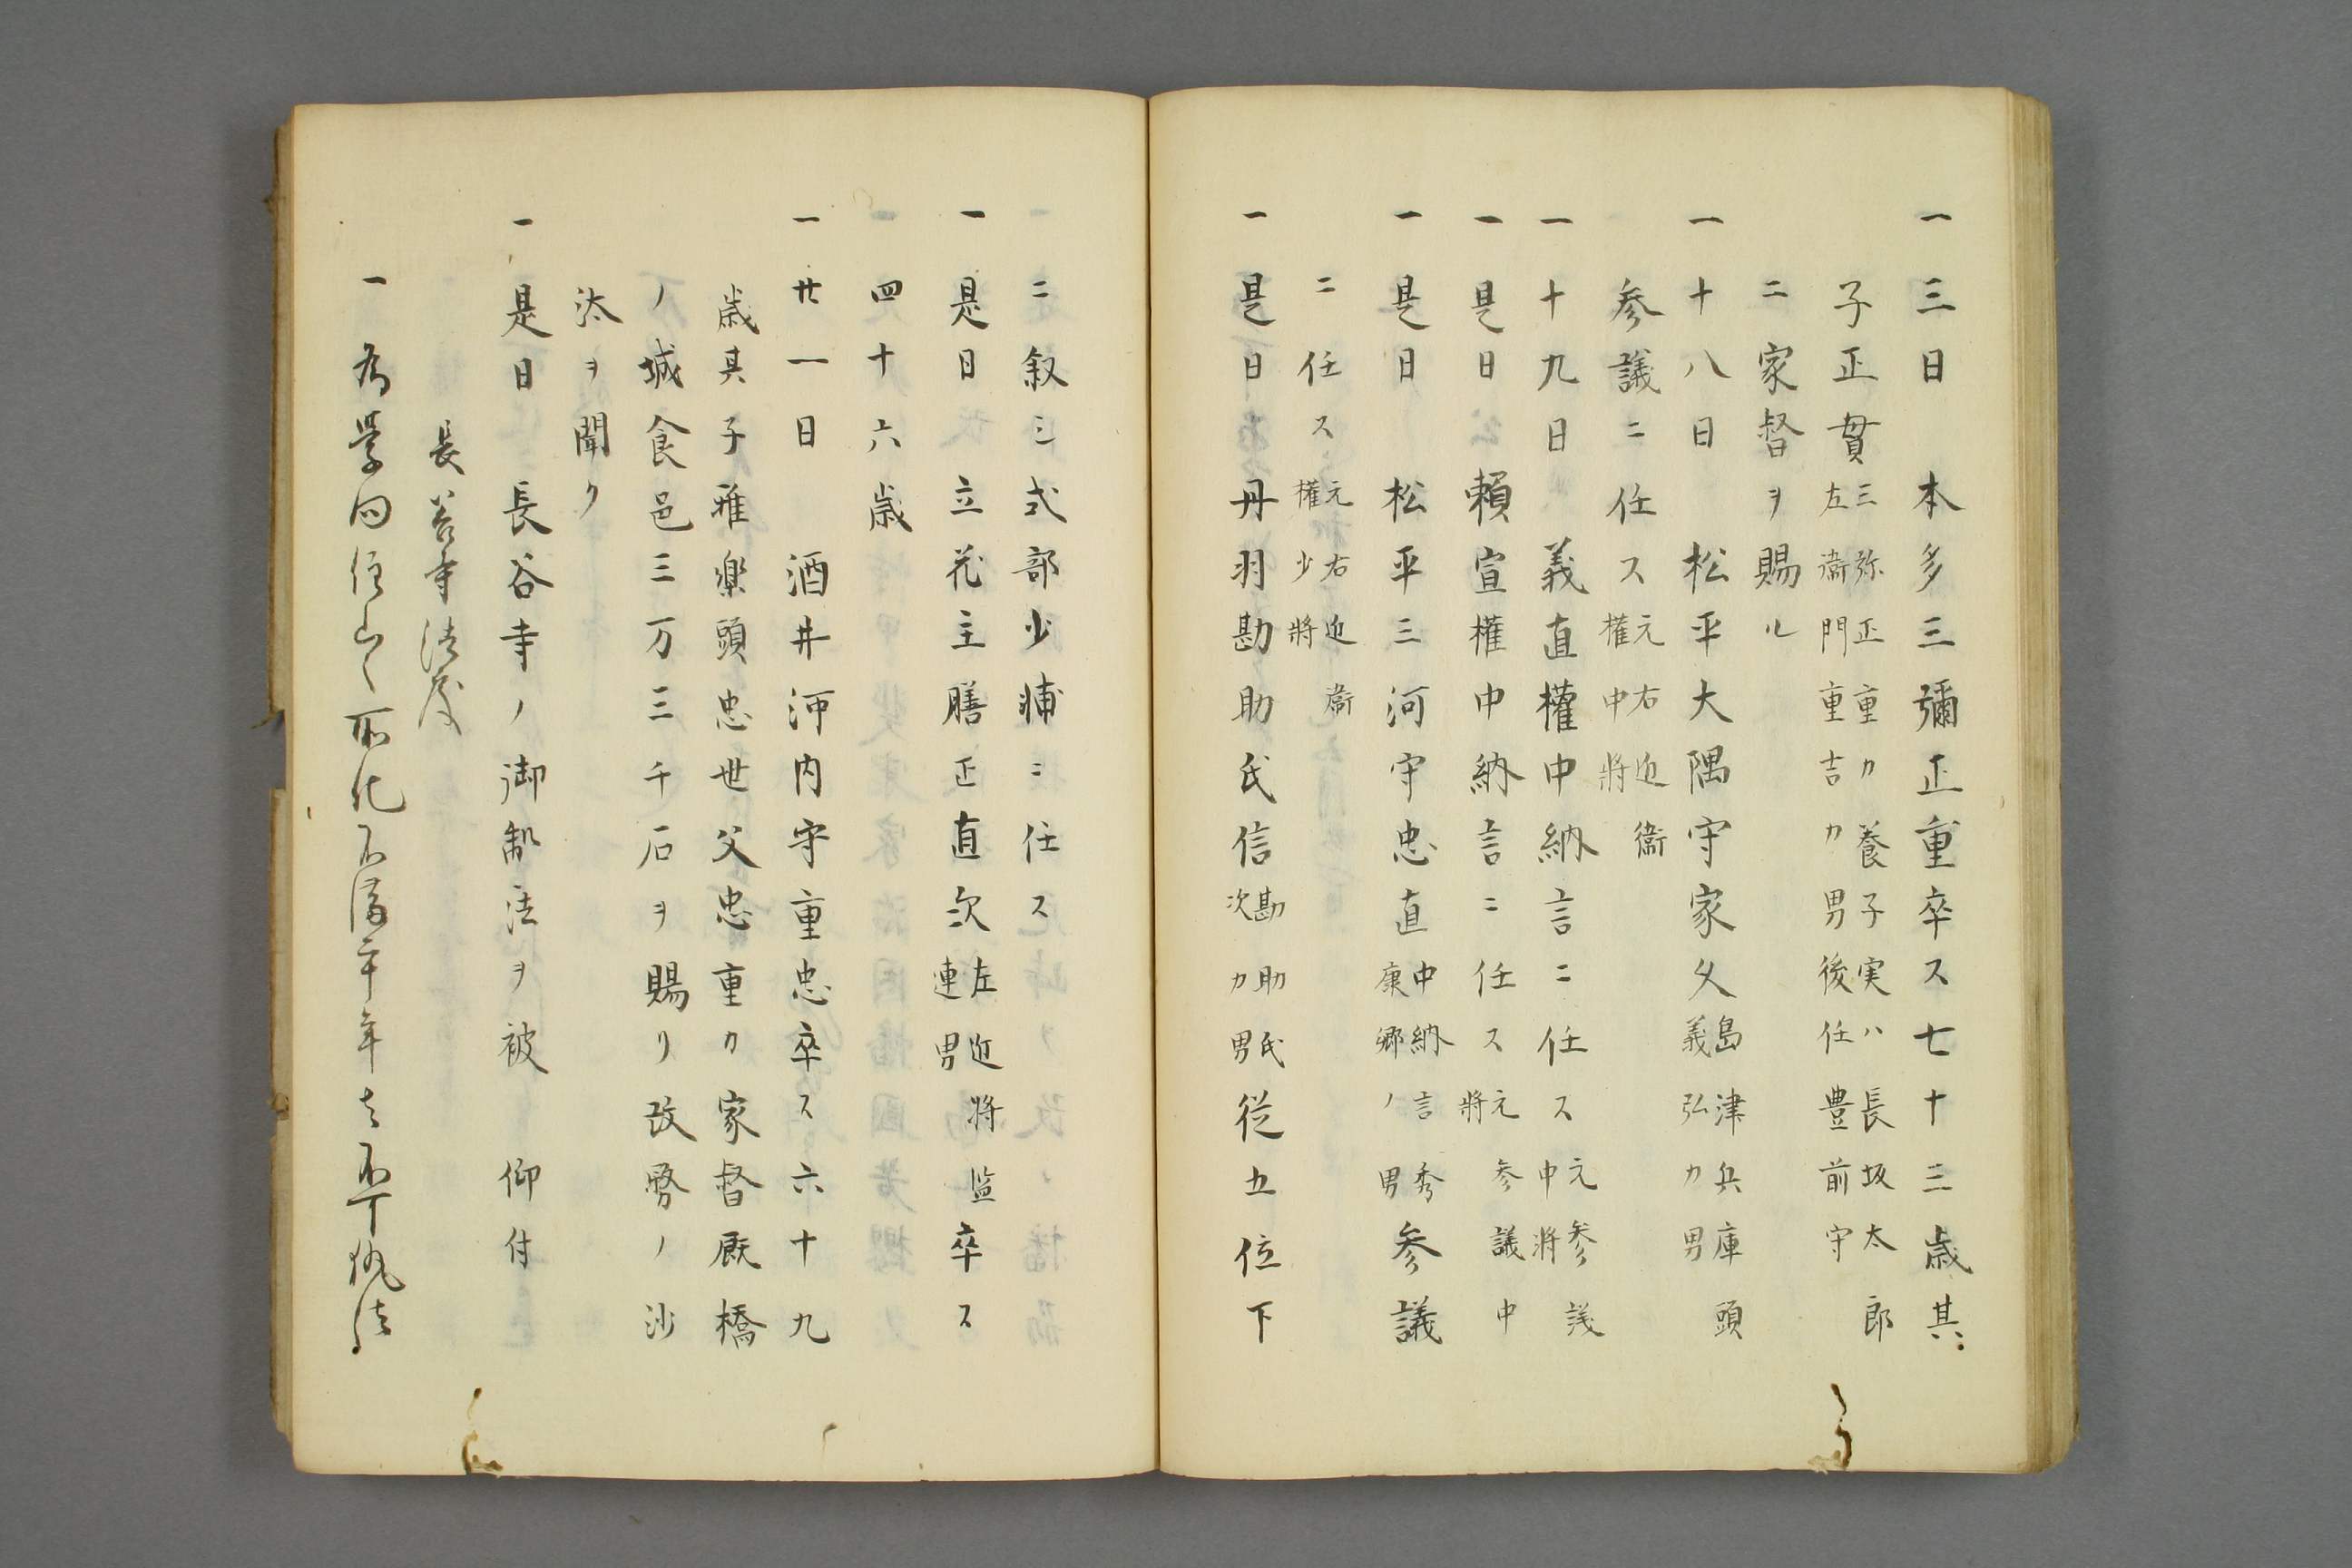 一三日 本多三彌正重卒ス七十三歳其
子正貫三弥正重カ養子実ハ長坂太郎
左衞門重吉カ男後任豊前守
ニ家督ヲ賜ル
一十八日 松平大隅守家久島津兵庫頭
義弘カ男
参議ニ任ス元右近衞
權中將
一十九日 義直權中納言ニ任ス元参議
中將
一是日 頼宣權中納言ニ任ス元参議中
將
一是日 松平三河守忠直中納言秀
康郷ノ男参議
ニ任ス元右近衞
權少將
一是日丹羽勘助氏信勘助氏
次カ男従五位下
ニ叙シ式部少輔ニ任ス
一是日 立花主膳正直次左近將監
連男卒ス
四十六歳
一廿一日 酒井河内守重忠卒ス六十九
歳其子雅楽頭忠世父忠重カ家督厩橋
ノ城食邑三万三千石ヲ賜リ政務ノ沙
汰ヲ聞ク
一是日 長谷寺ノ御制法ヲ被 仰付
長谷寺法度
一為學問住山之所化不満二十年者不可執法